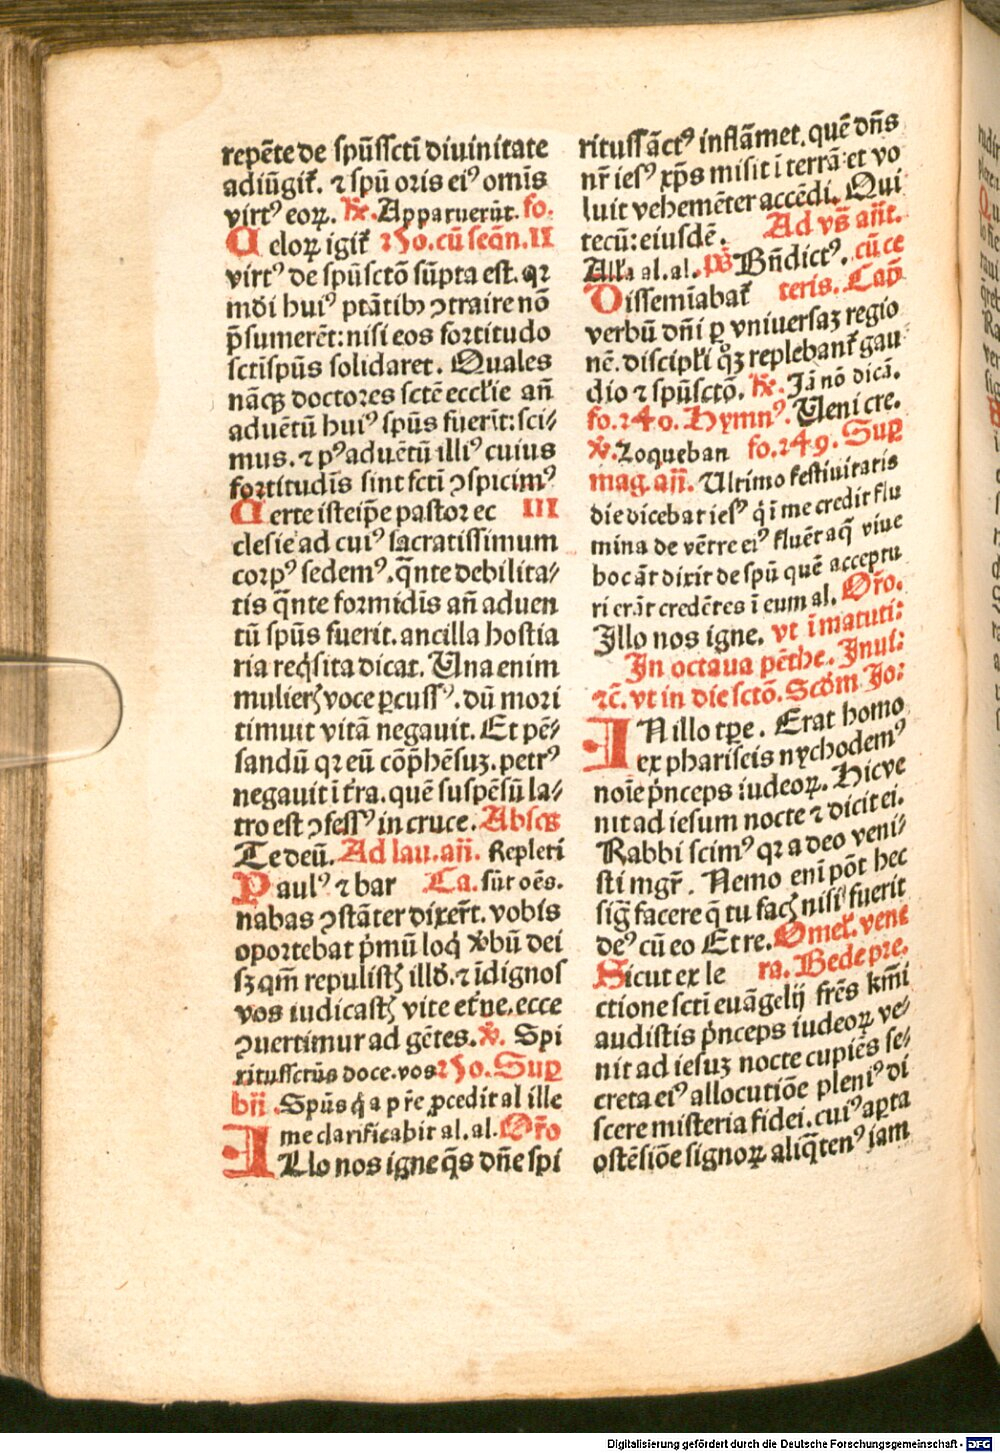 repēte de spūssctī diuinitate
adiūgit᷑. ⁊ spū oris eiꝰ omīs
virtꝰ eoꝝ. ℞. Apparuerūt. fo.
Celoꝝ igit᷑ 250. cū seqn̄. II
virtꝰ de spūsctō sūpta est. qꝛ
mūdi huiꝰ ptātibꝫ ꝯtraire nō
p̄sumerēt: nisi eos fortitudo
sctīspūs solidaret. Quales
nācꝫ doctores sctē eccƚie añ
aduētū huiꝰ spūs fuerīt: sci⸗
mus. ⁊ pꝰ aduētū illiꝰ cuius
fortitudīs sint fcti ꝯspicimꝰ
Certe iste ip̄e pastor ec III
clesie ad cuiꝰ sacratissimum
corpꝰ sedemꝰ. q̄nte debilita⸗
tis q̄nte formidīs añ aduen
tū spūs fuerit. ancilla hostia
ria reqͥsita dicat. Una enim
mulierꝭ voce ꝑcussꝰ. dū mori
timuit vitā negauit. Et pē⸗
sandū qꝛ eū cōp̄hēsuꝫ. petrꝰ
negauit ī t̄ra. quē suspēsū la⸗
tro est ꝯfessꝰ in cruce. Absqꝫ
Te deū. Ad lau. añ. Repleti
Paulꝰ ⁊ bar Ca. sūt oēs.
nabas ꝯstāter dixer̄t. vobis
oportebat p̄mū loqͥ v̄bū dei
sꝫ qm̄ repulistꝭ illd̄. ⁊ īdignos
vos iudicastꝭ vite et̄ne. ecce
ꝯuertimur ad gētes. ℣. Spi
ritussctūs doce. vos 250. Suꝑ
bn̄. Spūs qͥ a pr̄e ꝓcedit al ille
me clarificabit al. al. Or̄o
Illo nos igne q̄s dn̄e spi
ritussāctꝰ inflāmet. quē dn̄s
nr̄ iesꝰ xp̄s misit ī terrā: et vo
luit vehemēter accēdi. Qui
tecū: eiusdē. Ad vs̄ añt.
Alƚa al. al. p̄s Bn̄dictꝰ. cū ce
Dissemīabat᷑ teris. Cap̄
verbū dn̄i ꝑ vniuersaꝫ regio
nē. discipƚi qͦꝫ replebant᷑ gau
dio ⁊ spūsctō. ℞. Iā nō dicā.
fo. 240. Hymnꝰ. Ueni cre.
℣. Loqueban fo. 249. Suꝑ
mag. añ. Ultimo festiuitatis
die dicebat iesꝰ qͥ ī me credit flu
mina de vētre eiꝰ fluēt aq̄ viue
hoc āt dixit de spū quē acceptu
ri erāt credētes ī eum al. Or̄o.
Illo nos igne. vt ī matuti:
In octaua pēthe. Inuī:
⁊c̄. vt in die sctō. Scd̄m Jo:
IN illo tꝑe. Erat homo
ex phariseis nychodemꝰ
noīe p̄nceps iudeoꝝ. Hic ve
nit ad iesum nocte ⁊ dicit ei.
Rabbi scimꝰ qꝛ a deo veni⸗
sti mgr̄. Nemo enī pōt hec
siḡ facere q̄ tu facꝭ nisi fuerit
deꝰ cū eo Et re. Omeƚ. vene
Sicut ex le ra. Bede pre.
ctione sctī euāgelij fr̄es km̄i
audistis p̄nceps iudeoꝝ ve⸗
nit ad iesuꝫ nocte cupiēs se⸗
creta eiꝰ allocutiōe pleniꝰ di
scere misteria fidei. cuiꝰ aꝑta
ostēsiōe signoꝝ aliq̄tenꝰ iam
Digitalisierung gefördert durch die Deutsche Forschungsgemeinschaft - DFG